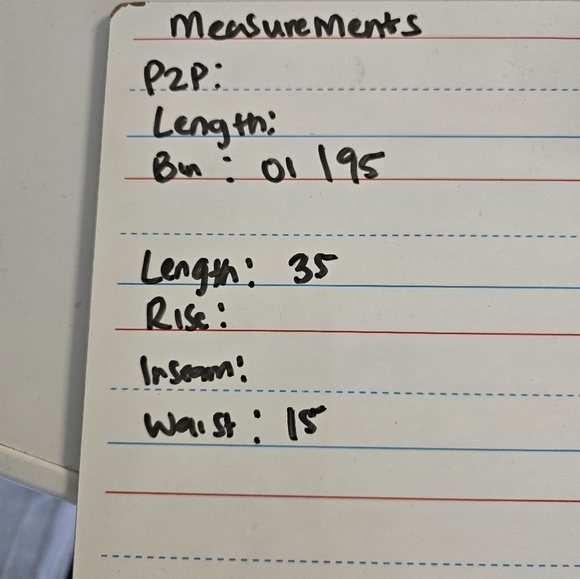 Measurements
P2P:
Length:
Bin: 01 195
Length: 35
Rise:
Inseam:
Waist: 15